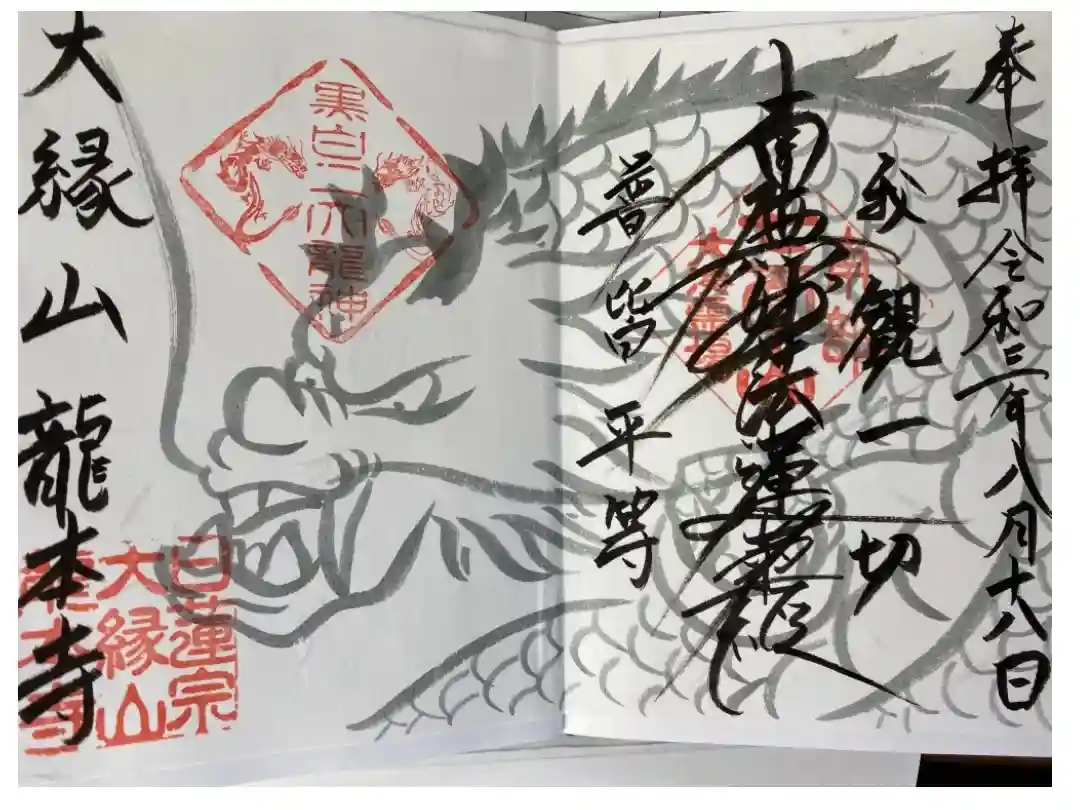 奉拝 令和三年八月十八日
我観一切
南無妙法蓮華経
普皆平等
黒白二大龍神
大縁山龍本寺
日蓮宗
大縁山
龍本寺